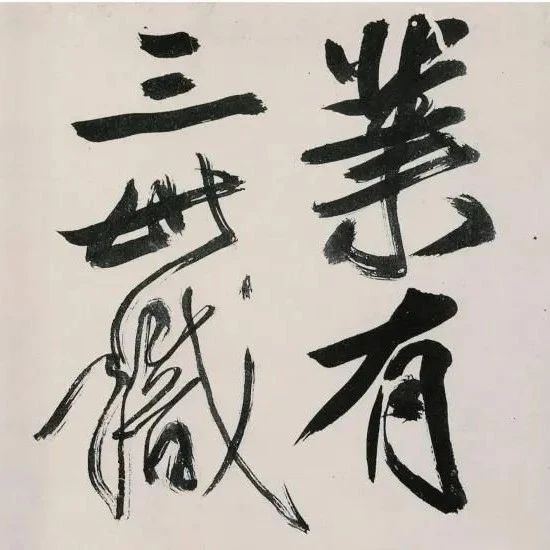 業有
三世職